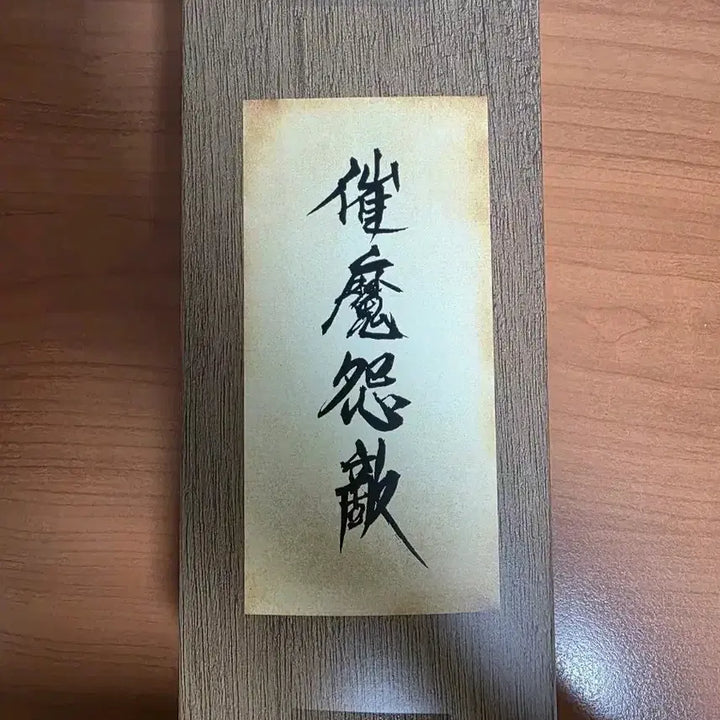 催魔怨敵